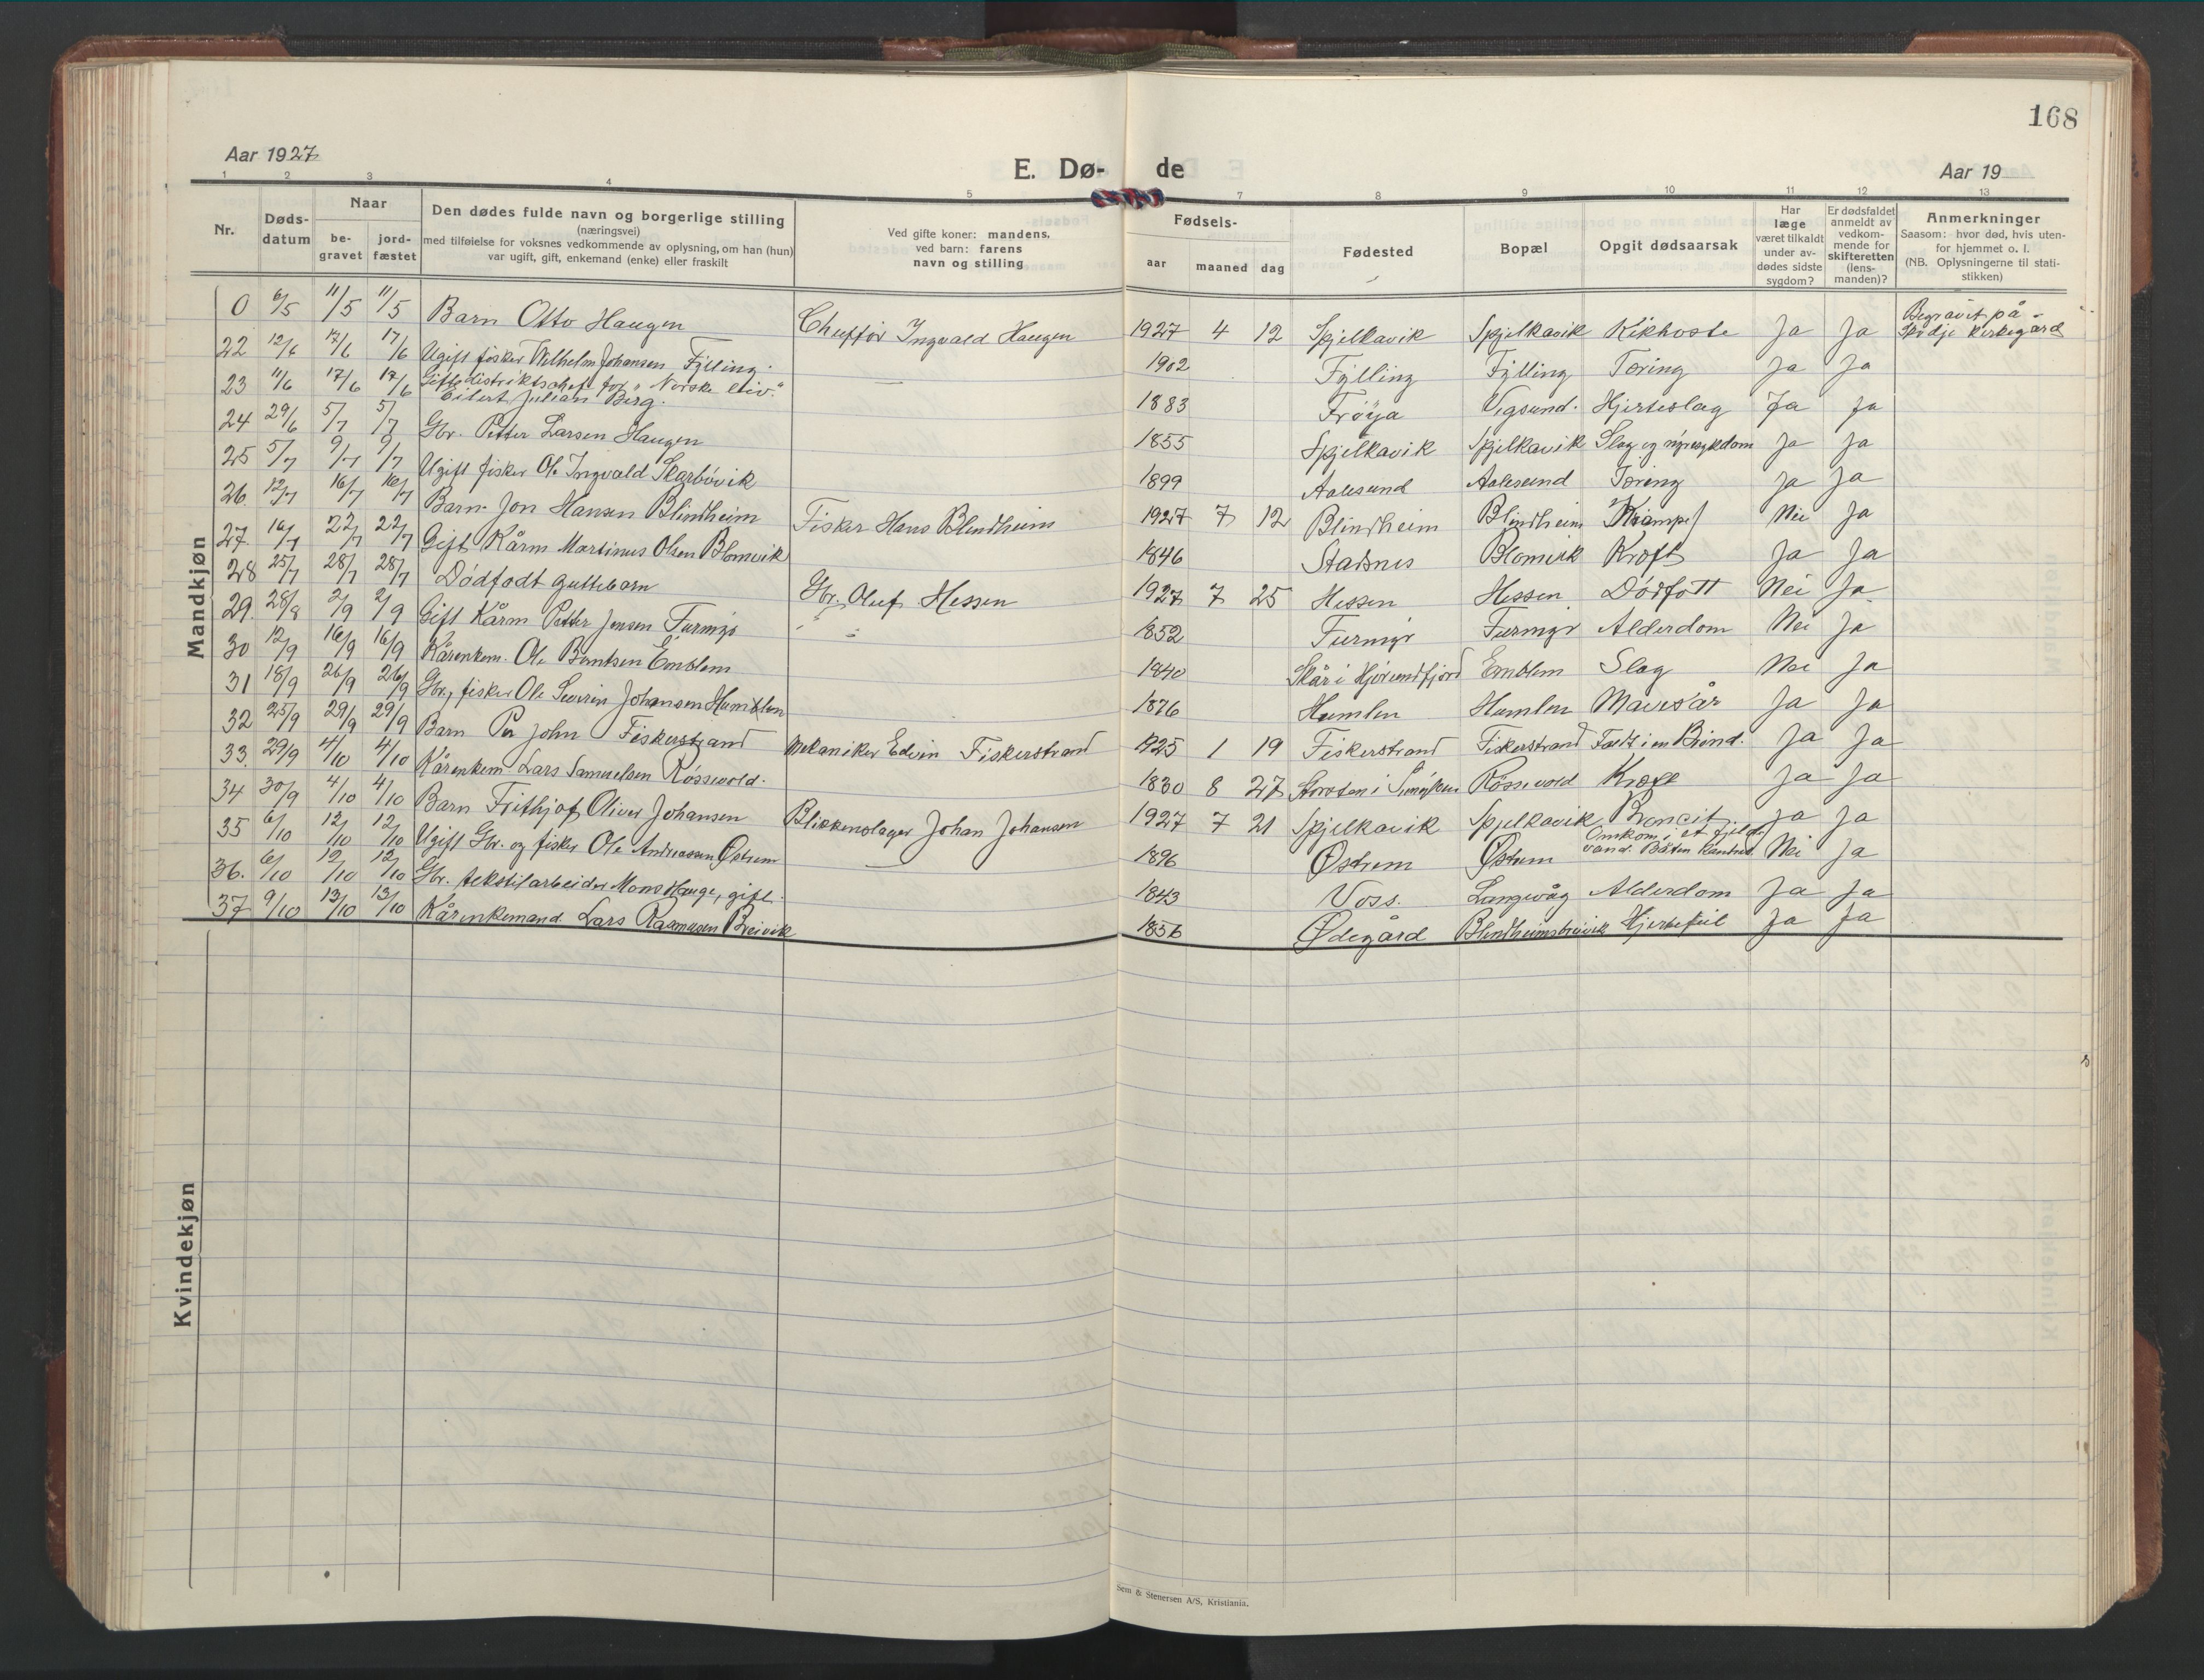 168
Aar 1927
E. Dø- de
Aar 19
1 2 3 4 5 7 8 9 10 11 12 13
Nr.
Døds-
datum
Naar
be-
gravet
jord-
fæstet
Den dødes fulde navn og borgerlige stilling
(næringsvei)
med tilføielse for voksnes vedkommende av oplysning, om han (hun)
var ugift, gift, enkemand (enke) eller fraskilt
Ved gifte koner: mandens,
ved barn: farens
navn og stilling
Fødsels-
aar maaned dag
Fødested
Bopæl
Opgit dødsaarsak
Har
læge
været tilkaldt
under av-
dødes sidste
sygdom?
Er dødsfaldet
anmeldt av
vedkom-
mende for
skifteretten
(lens-
manden)?
Anmerkninger
Saasom: hvor død, hvis uten-
for hjemmet o. l.
(NB. Oplysningerne til stati-
stikken)
Mandkjøn
0 6/5 11/5 11/5 Barn Otto Haugen Chuffør Ingvald Haugen 1927 4 12 Spjelkavik Spjelkavik Kikhoste Ja Ja Begravet på
Skodje kirkegård
22 12/6 17/6 17/6 Ugift fisker Wilhelm Johansen Fylling. 1902 Fylling Fylling Tæring Ja Ja
23 11/6 17/6 17/6 Gift distriktschef for "Norske Liv".
Eilert Julian Berg. — 1883 Frøya Vegsund. Hjerteslag Ja Ja
24 29/6 5/7 5/7 Gbr. Petter Larsen Haugen 1855 Spjelkavik Spjelkavik Slag og nyresykdom Ja Ja
25 5/7 9/7 9/7 Ugift fisker Ole Ingvald Skarbøvik 1899 Aalesund Aalesund Tæring Ja Ja
26. 12/7 16/7 16/7 Barn Jon Hansen Blindheim Fisker Hans Blindheim 1927 7 12 Blindheim Blindheim Krampe Nei Ja
27. 16/7 22/7 22/7 Gift Kårm Martinus Olsen Blomvik 1846 Stadsnes Blomvik Kræft Ja Ja
28 25/7 28/7 28/7 Dødfødt guttebarn Gbr. Oluf Hessen 1927 7 25 Hessen Hessen Dødfött Nei Ja
29. 28/8 2/9 2/9 Gift Kårm Petter Jensen Furmyr 1852 Furmyr Furmyr Alderdom Nei Ja
30 12/9 16/9 16/9 Kårenkem. Ole Berntsen Emblem 1840 Skår i Hjørundfjord Emblem Slag Nei Ja
31 18/9 26/9 26/9 Gbr, fisker Ole Severin Johansen Humblen 1876 Humlen Humlen Mavesår Ja Ja
32 25/9 29/9 29/9 Barn Per John Fiskerstrand Mekaniker Edvin Fiskerstrand 1925 1 19 Fiskerstrand Fiskerstrand Faldt i en Brønd. Ja Ja
33. 29/9 4/10 4/10 Kårenkem. Lars Samuelsen Røssevold. 1830 8 27 i Røssevold Kræft Ja Ja
34 30/9 4/10 4/10 Barn Frithjof Oliver Johansen Blikkenslager Johan Johansen 1927 7 21 Spjelkavik Spjelkavik Broncit. Ja Ja
35 6/10 12/10 12/10 Ugift Gbr. og fisker Ole Andreassen Østrem — 1896 Østrem Østrem Omkom i et fjeld-
vand. Båten kantret. Nei Ja
36. 6/10 12/10 12/10 Gbr. tekstilarbeider Mons Hauge, gift. 1843 Voss. Langevåg Alderdom Ja Ja
37 9/10 13/10 13/10 Kårenkemand Lars Rasmusen Breivik 1856 Ødegård Blindheimsbreivik Hjertefeil Ja Ja
Kvindekjøn
Sem & Stenersen A/S, Kristiania.